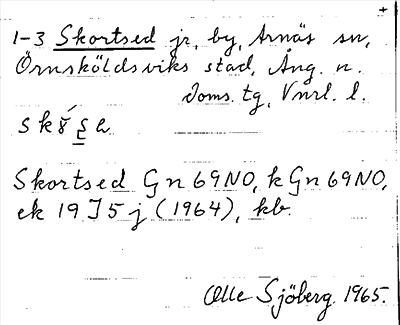 +
1-3 Skortsed jr, by, Arnäs sn,
Örnsköldsviks stad, Ång. n.
Doms. tg, Vnrl. l.
Skortsed Gn 69NO, k Gn 69NO,
ek 19 I 5 j (1964), kb.
Olle Sjöberg. 1965.